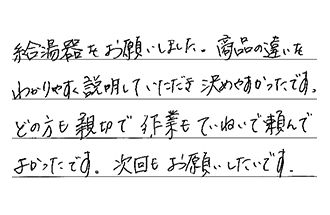 給湯器をお願いしました。商品の違いを
わかりやすく説明していただき決めやすかったです。
どの方も親切で作業もていねいで頼んで
よかったです。次回もお願いしたいです。